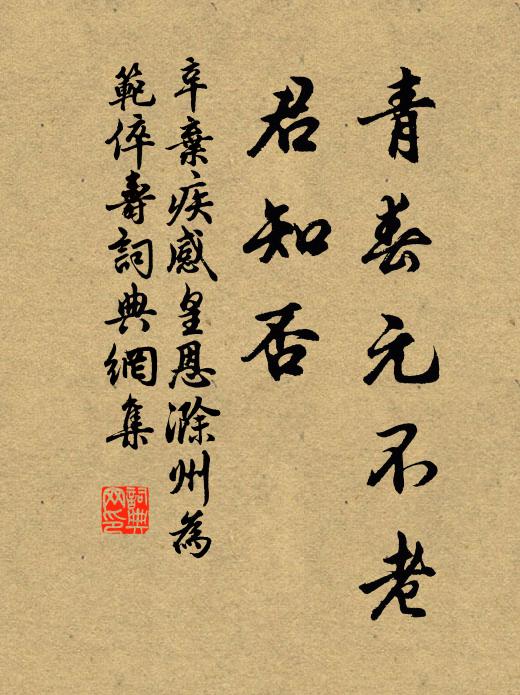 青春元不老
君知否
辛棄疾感皇恩滁州為
範倅壽詞典網集
詞典
网印